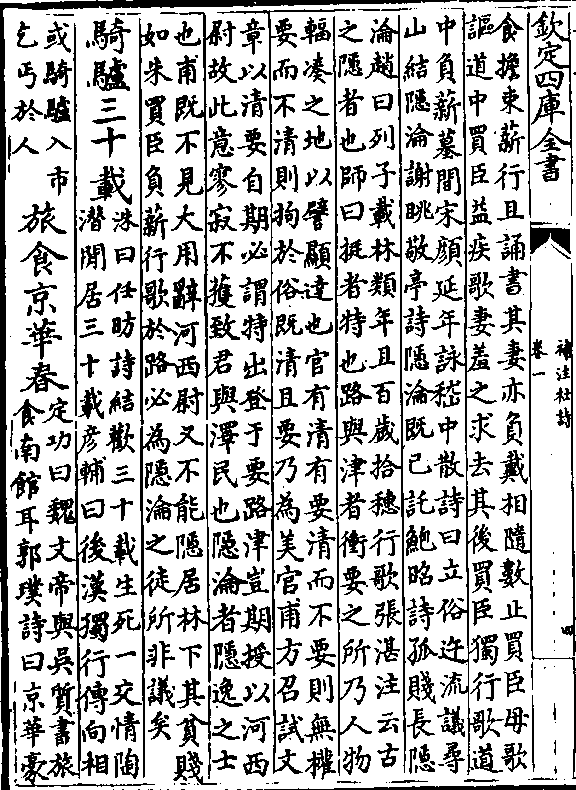 欽定四庫全書
補注杜詩
卷一
四
食擔束薪行且誦書其妻亦負戴相隨數止買臣毋歌
謳道中買臣益疾歌妻羞之求去其後買臣獨行歌道
中負薪墓間宋顔延年詠嵇中散詩曰立俗迕流議尋
山結隱淪謝眺敬亭詩隱淪既已託鮑昭詩孤賤長隠
淪趙曰列子載林類年且百歲拾穗行歌張湛注云古
之隱者也師曰挺者特也路與津者衝要之所乃人物
輻凑之地以譬顯達也官有清有要清而不要則無權
要而不清則拘於俗既清且要乃為美官甫方召試文
章以清要自期必謂特出登于要路津豈期授以河西
尉故此意寥寂不獲致君與澤民也隱淪者隱逸之士
也甫既不見大用辭河西尉又不能隠居林下其貧賤
如朱買臣負薪行歌於路必為隱淪之徒所非議矣
騎驢三十載
洙曰任昉詩結歡三十載生死一交情陶
潛閒居三十載彦輔曰後漢獨行傳向相
或騎驢入市
乞丐於人
旅食京華春
定功曰魏文帝與吳質書旅
食南館耳郭璞詩曰京華豪